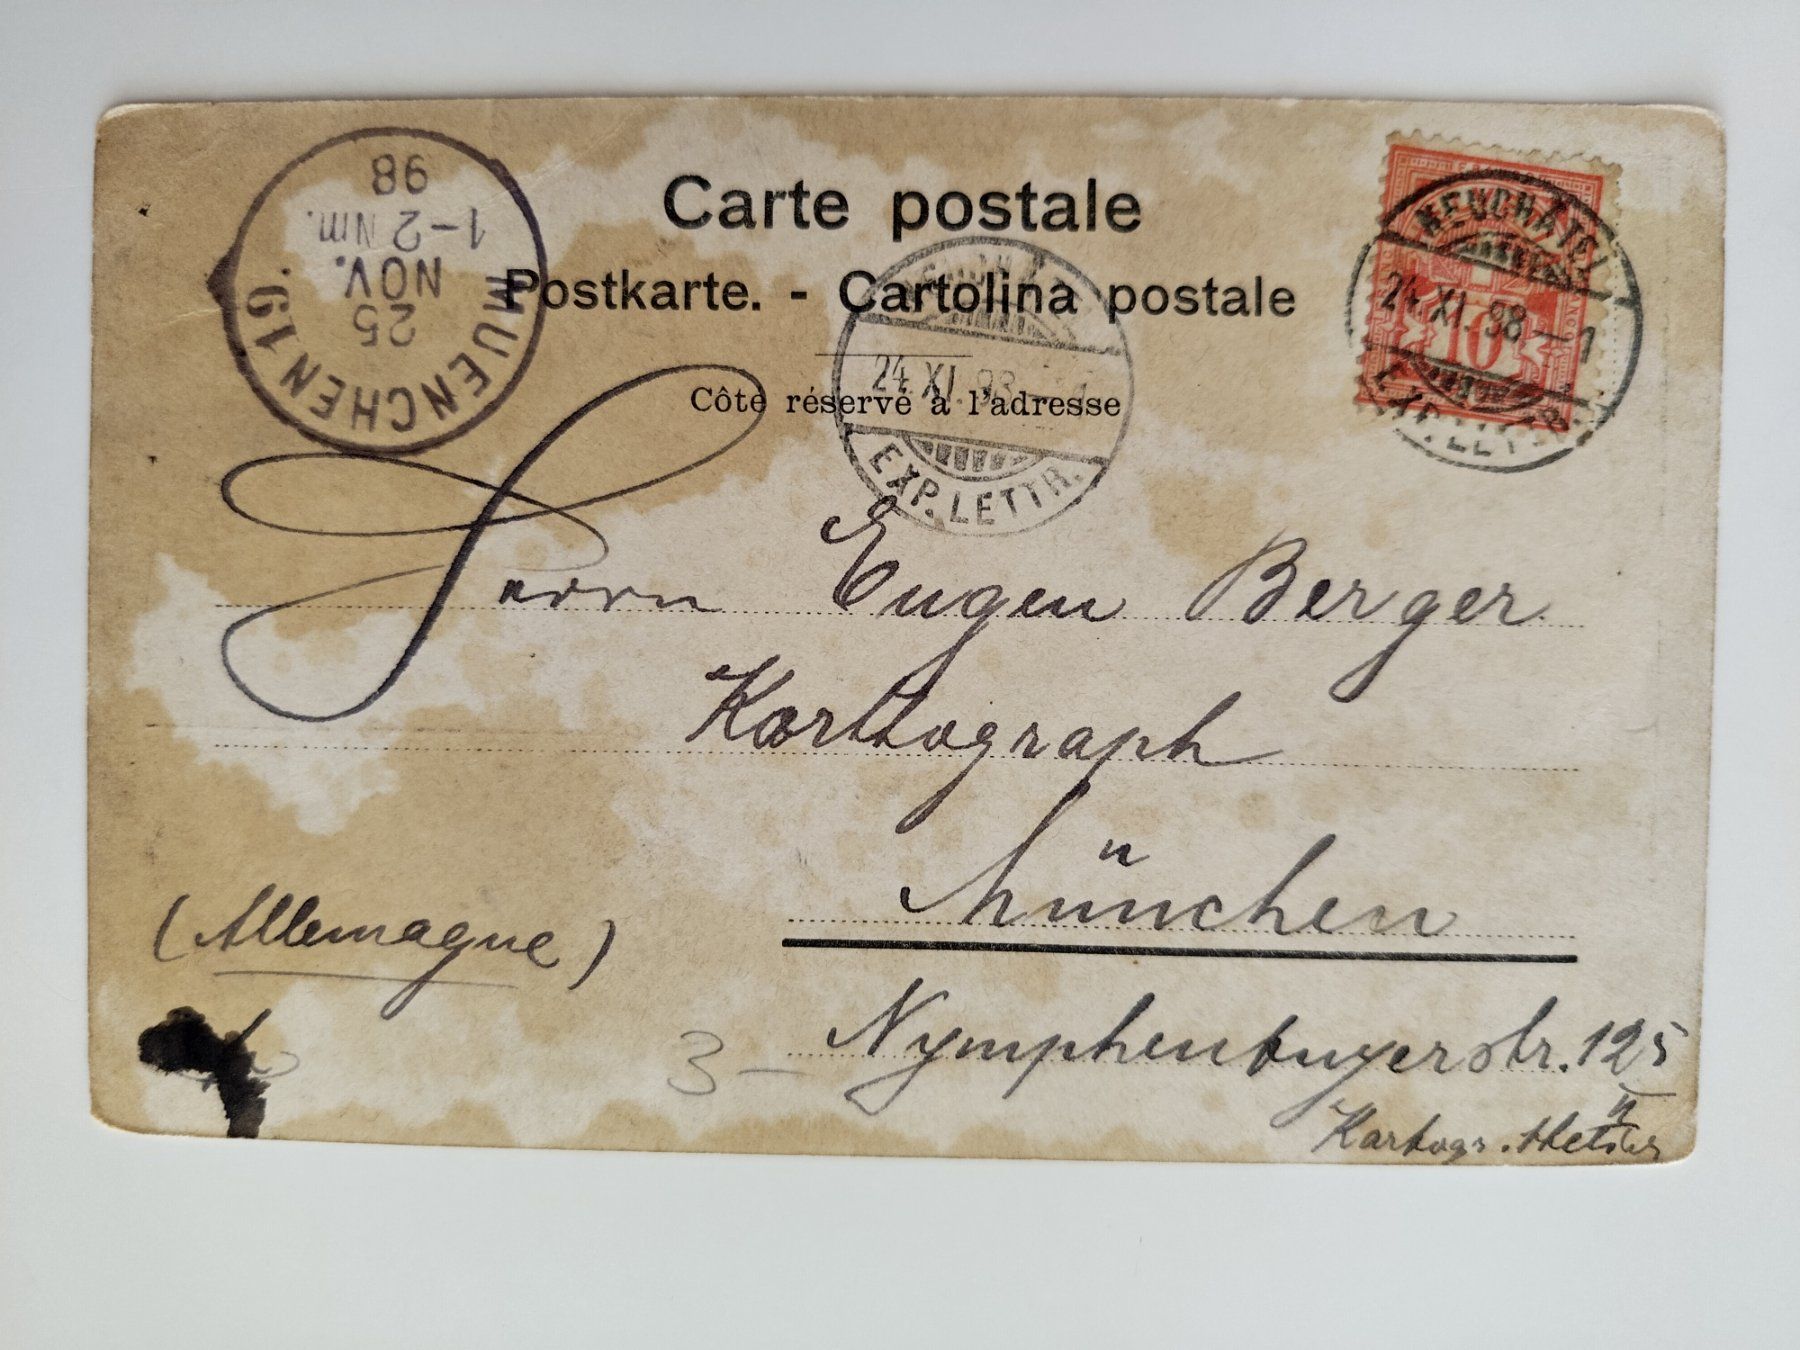 Carte postale
Postkarte. - Cartolina postale
Côté réservé à l'adresse
MUENCHEN 19.
25
NOV.
1-2 Nm.
98
24.XI.98
EXP. LETTR.
NEUCHATEL
24.XI.98-1
EXP. LETTR.
10
Herrn Eugen Berger.
Karttograph
München
(Allemagne)
Nymphenburgerstr. 125
II
3 -
Kartogr.